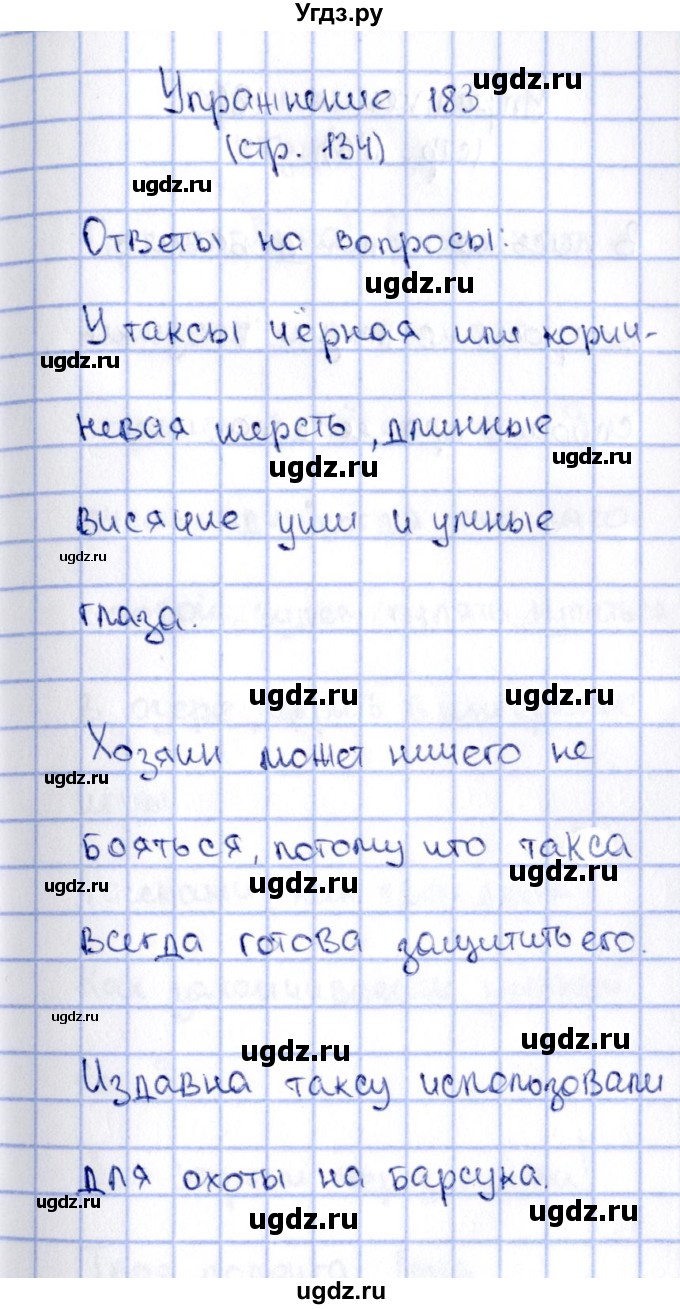 Угдз.ру
Упражнение 183
ugdz.ru
(стр. 134)
ugdz.ru
Ответы на вопросы:
ugdz.ru
У таксы чёрная или корич-
ugdz.ru
невая шерсть, длинные
ugdz.ru ugdz.ru
висячие уши и умные
ugdz.ru
глаза.
ugdz.ru ugdz.ru
Хозяин может ничего не
ugdz.ru
бояться, потому что такса
ugdz.ru ugdz.ru ugdz.ru
всегда готова защитить его.
ugdz.ru
ugdz.ru ugdz.ru
Издавна таксу использовали
для охоты на барсука.
ugdz.ru ugdz.ru ugdz.ru
ugdz.ru